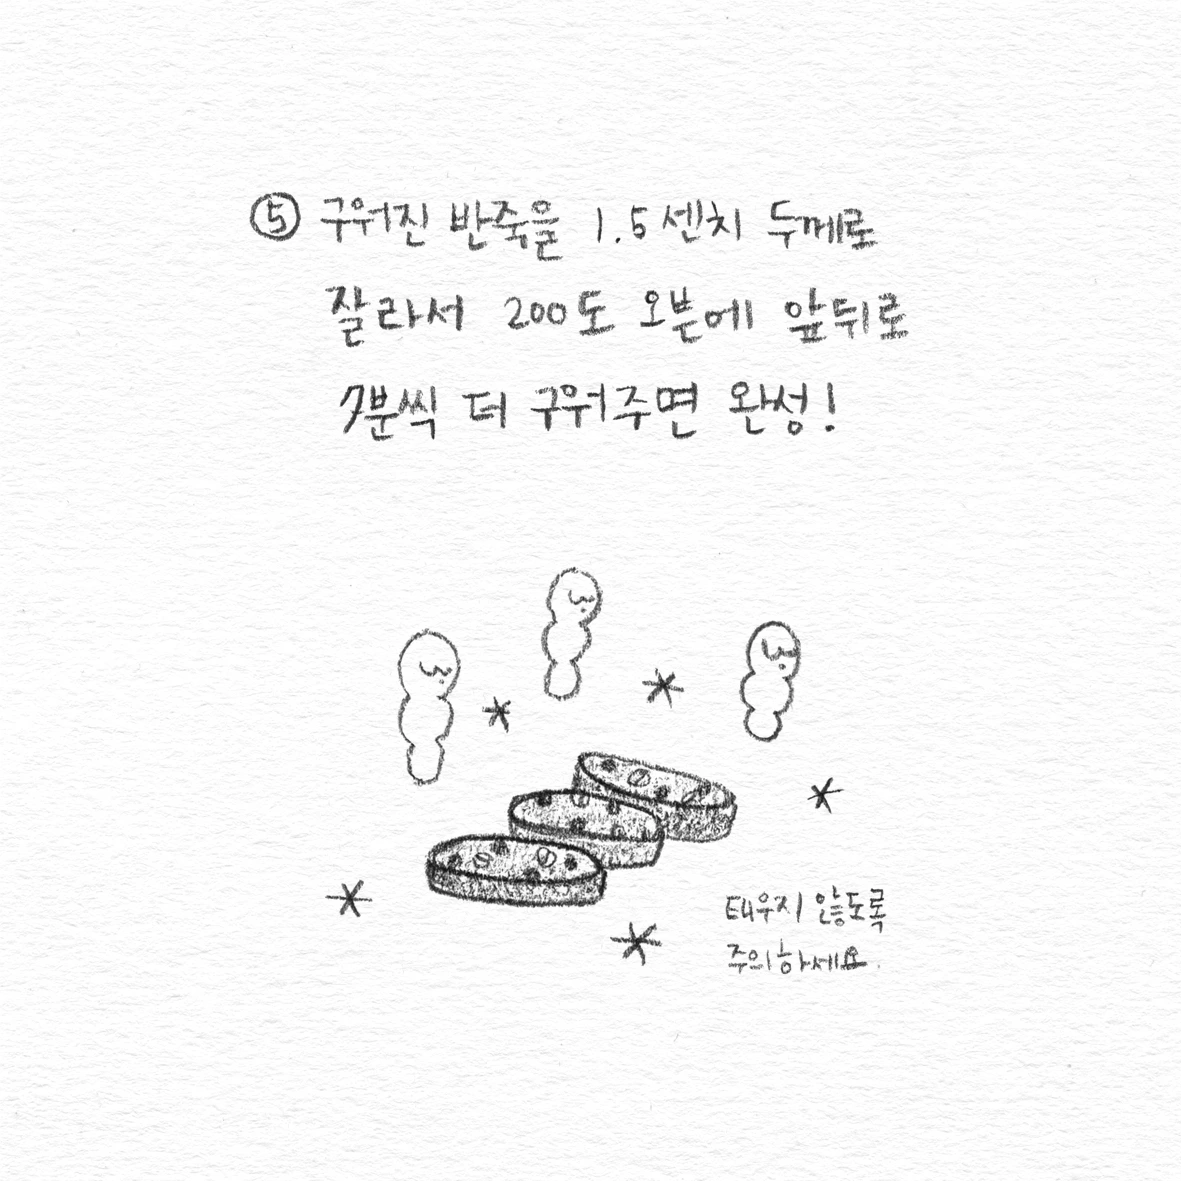 ⑤ 구워진 반죽을 1.5센치 두께로
잘라서 200도 오븐에 앞뒤로
7분씩 더 구워주면 완성!
태우지 않도록
주의하세요.